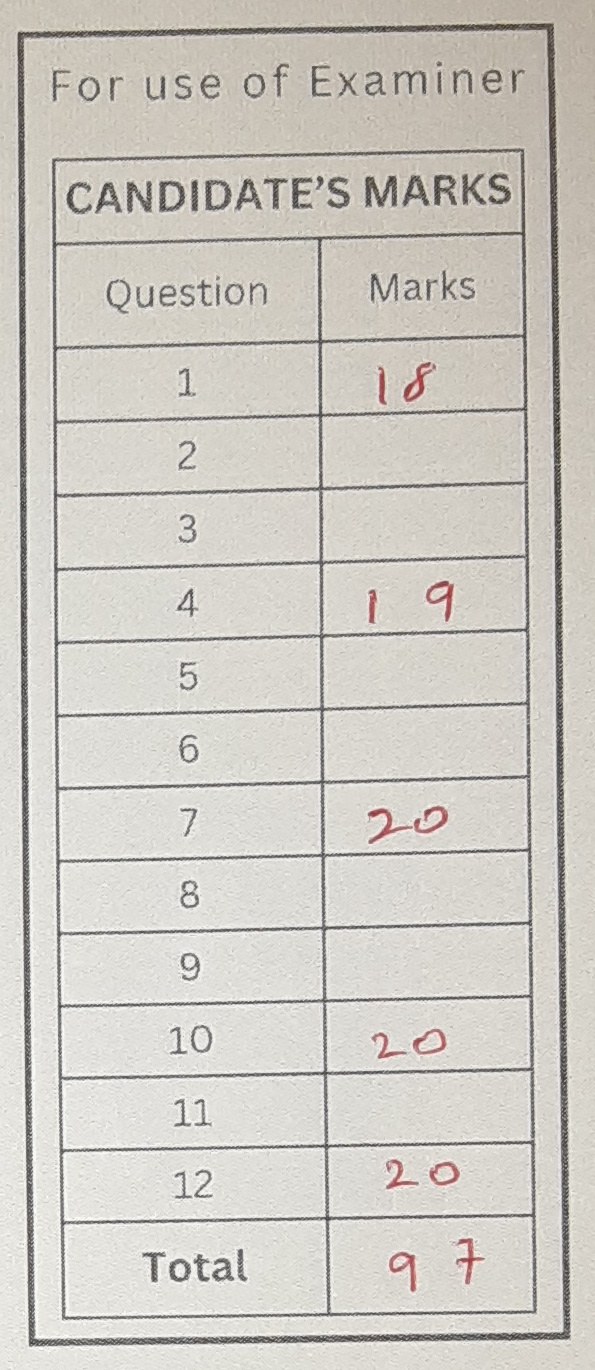 For use of Examiner
CANDIDATE'S MARKS
Question Marks
1 18
2
3
4 19
5
6
7 20
8
9
10 20
11
12 20
Total 97